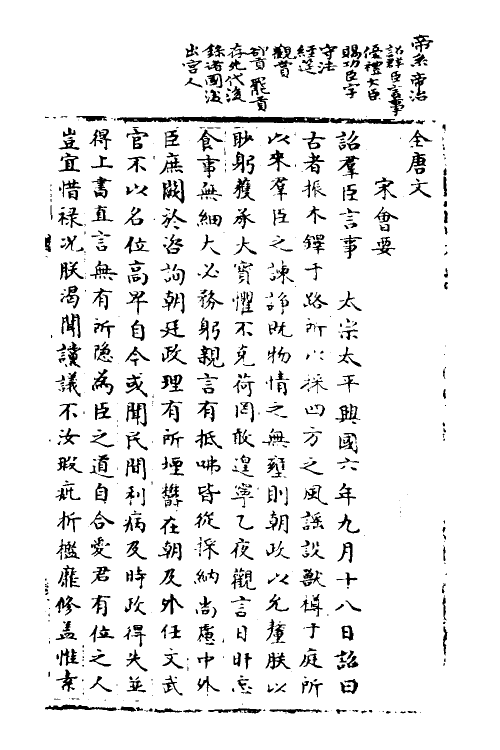 帝系 帝治
詔群臣言事
優禮大臣
賜功臣字
守法
經筵
觀賞
卻貢 罷貢
存先代後
錄諸國後
出宮人
全唐文
宋會要
詔羣臣言事 太宗太平興國六年九月十八日詔曰
古者振木鐸于路所以採四方之風謠設獸樽于庭所
以來羣臣之諫諍既物情之無壅則朝政以允釐朕以
眇躬獲承大寶懼不克荷罔敢遑寧乙夜觀言日旰忘
食事無細大必務躬親言有抵咈皆從採納尚慮中外
臣庶闕於咨詢朝廷政理有所堙鬱在朝及外任文武
官不以名位高卑自今或聞民間利病及時政得失並
得上書直言無有所隐為臣之道自合愛君有位之人
豈宜惜禄况朕渴聞讜議不汝瑕疵折檻靡修盖惟素